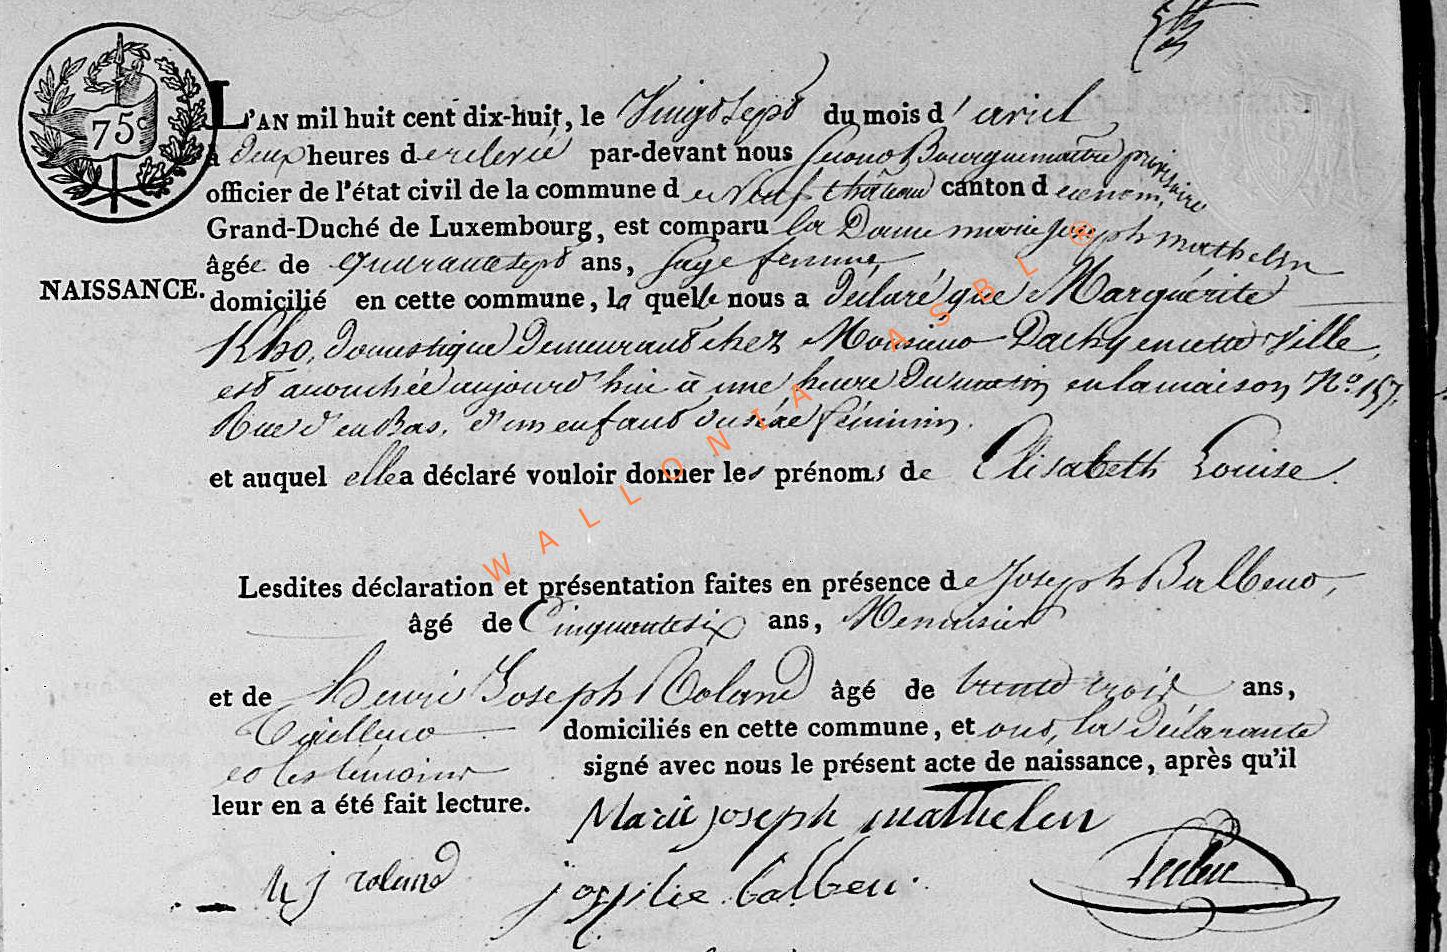 75c
L'AN mil huit cent dix-huit, le Vingt sept du mois d'avril
à deux heures de relevée par-devant nous second Bourguemaître provisoire
officier de l'état civil de la commune de Neufchâteau canton de ce nom,
Grand-Duché de Luxembourg, est comparu la Dame marie Joseph mathelin
âgée de quarante sept ans, sage femme,
NAISSANCE.
domicilié en cette commune, la quelle nous a déclaré que Marguérite
Kho, domestique demeurant chez Monsieur Dachy en cette Ville,
est accouchée aujourd'hui à une heure du matin en la maison No. 157,
Rue d'en Bas, d'un enfant du sexe féminin.
et auquel elle a déclaré vouloir donner les prénoms de Elisabeth Louise.
Lesdites déclaration et présentation faites en présence de Joseph Balbeur,
âgé de Cinquante six ans, Menuisier
et de henri Joseph Roland âgé de trente trois ans,
Tailleur domiciliés en cette commune, et ont, la déclarante
et les témoins signé avec nous le présent acte de naissance, après qu'il
leur en a été fait lecture.
Marie joseph mathelin
h j roland
WALLONIA ASBL ®